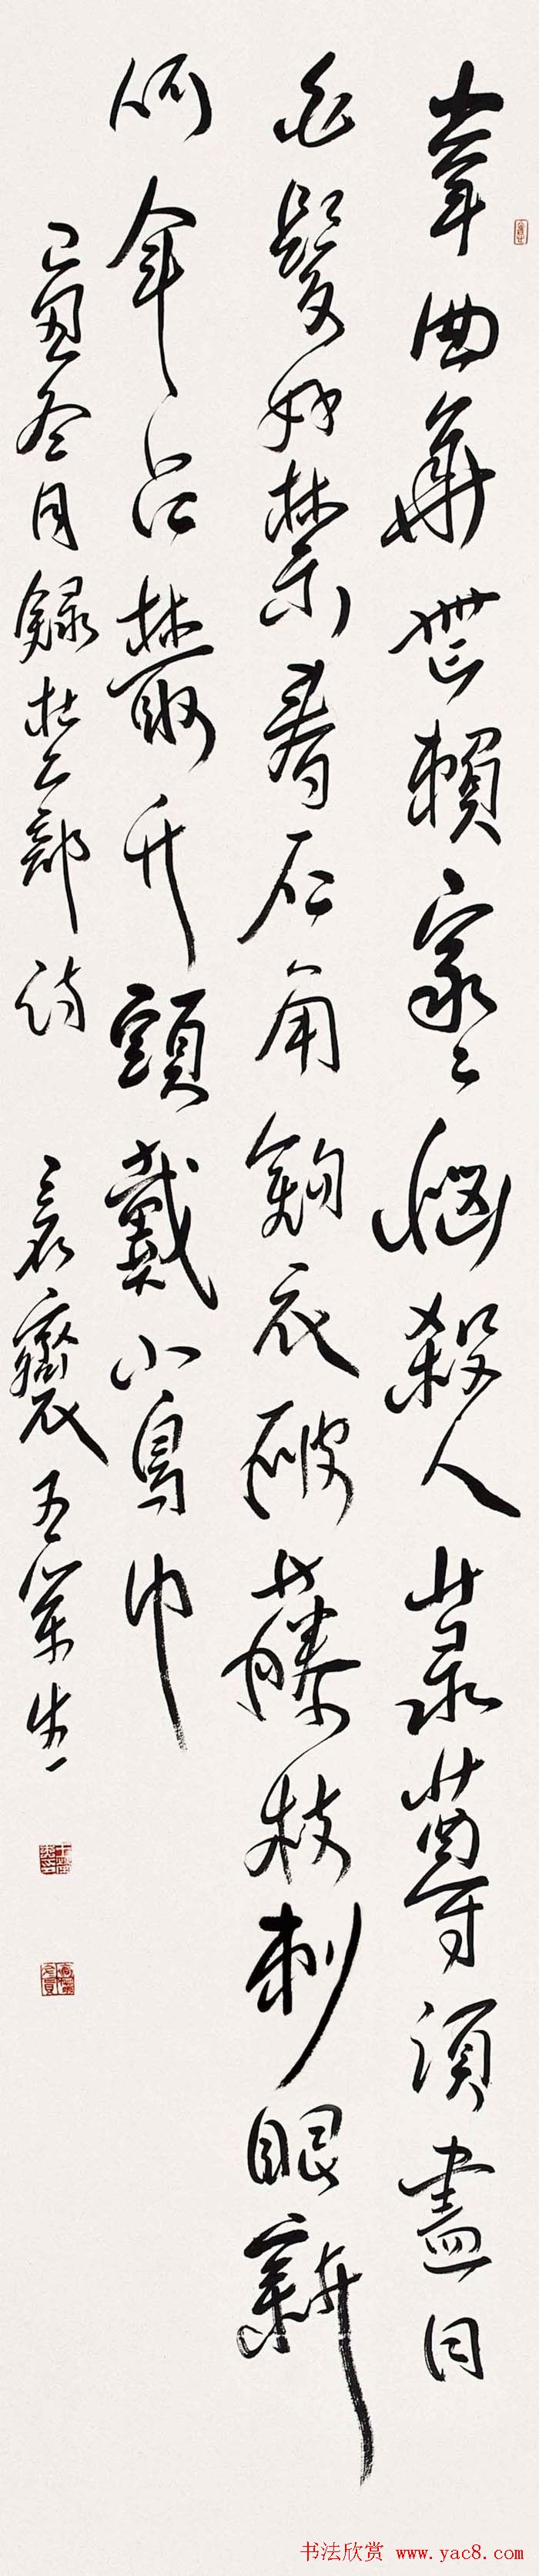 韋曲華無賴家〻惱殺人菉尊須盡日
白髮好禁春石角鉤衣破藤枝刺眼新
何年占叢竹頭戴小烏巾
己丑冬月錄杜工部詩
书法欣赏 www.yac8.com